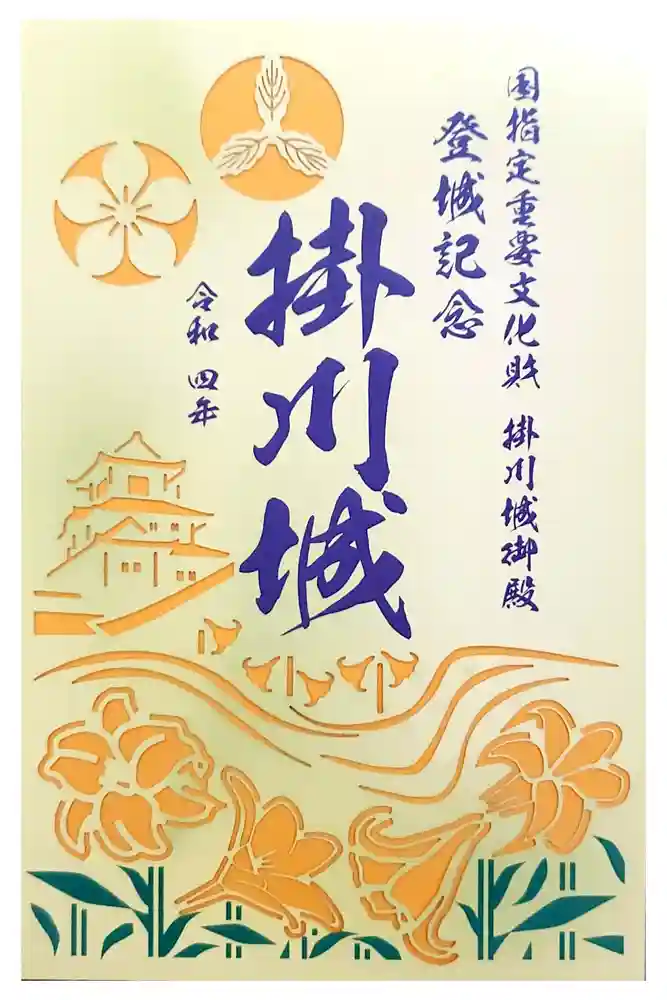 国指定重要文化財 掛川城御殿
登城記念
掛川城
令和 四年